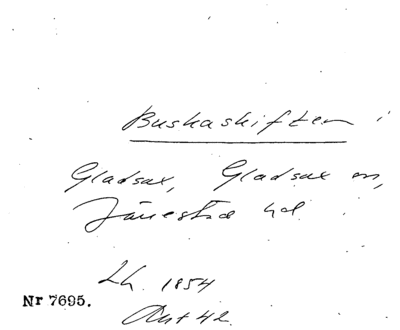 Buskaskiften i
Gladsax, Gladsax sn,
Järrestad hd.
Lh. 1854
Nr 7695.
Ant 42